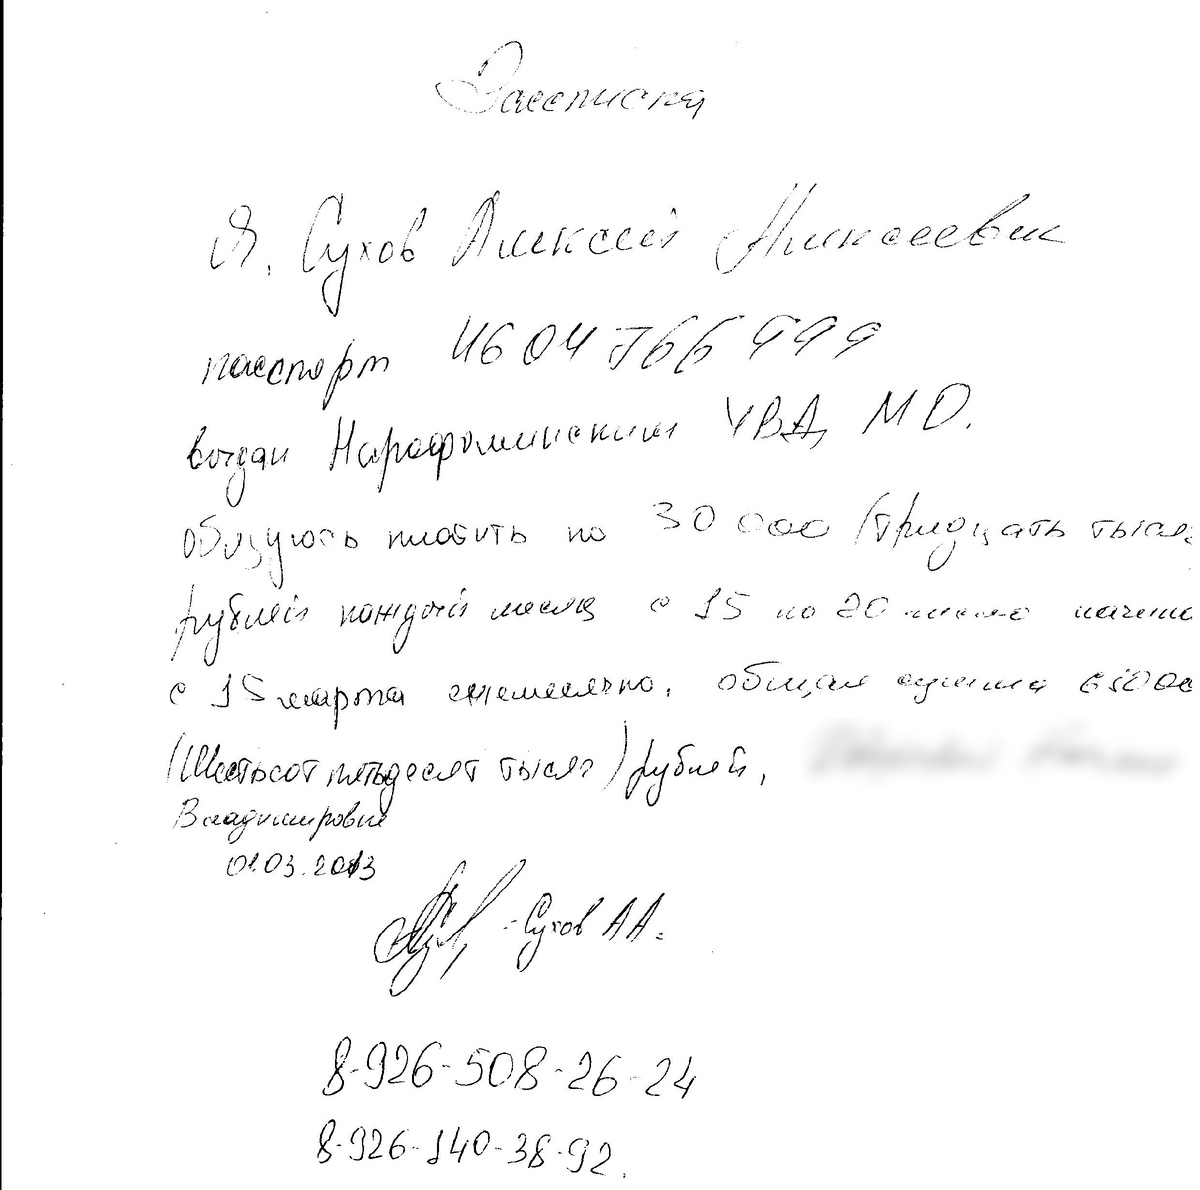 Расписка
Я, Сухов Алексей Алексеевич
паспорт 4604 766 999
выдан Нарафоминским УВД МО.
обязуюсь платить по 30 000 (тридцать тысяч
рублей каждый месяц с 15 по 20 число начина
с 15 марта ежемесячно, общая сумма 65000
(Шестьсот пятьдесят тысяч) рублей,
Владимировне
01.03.2013
- Сухов АА.
8-926-508-26-24
8-926-140-38-92.